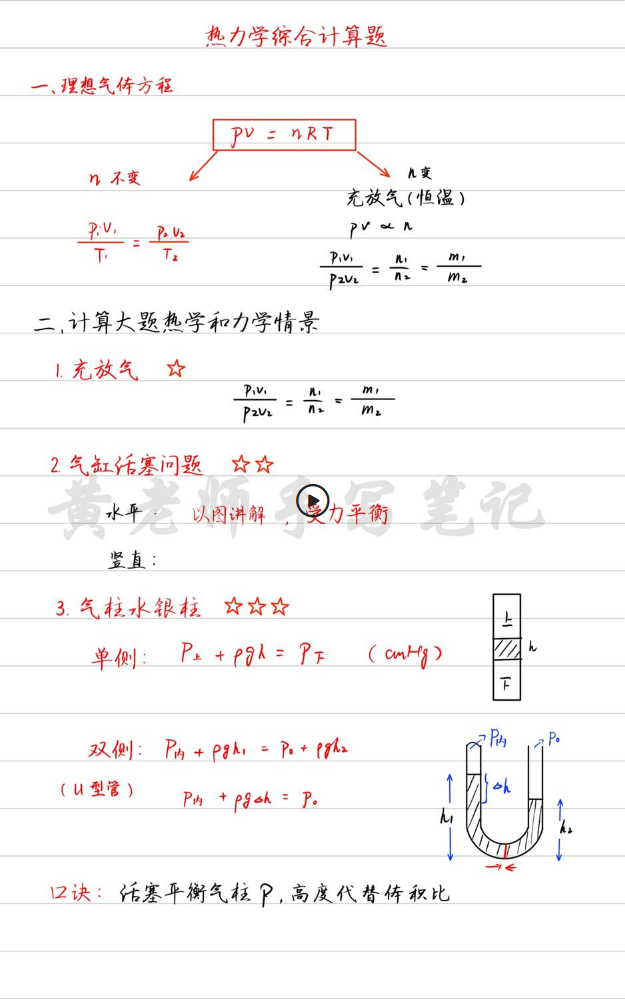 热力学综合计算题
一、理想气体方程
pV = nRT
n 不变
n 变
充放气(恒温)
pV ∝ n
p₁V₁/T₁ = p₂V₂/T₂
p₁V₁/p₂V₂ = n₁/n₂ = m₁/m₂
二、计算大题热学和力学情景
1. 充放气 ☆
p₁V₁/p₂V₂ = n₁/n₂ = m₁/m₂
2. 气缸活塞问题 ☆☆
黄老师手写笔记
水平: 以图讲解,受力平衡
竖直:
3. 气柱水银柱 ☆☆☆
单侧: P上 + ρgh = P下 (cmHg)
上
h
下
双侧: P内 + ρgh₁ = P₀ + ρgh₂
(U型管)
P内 + ρgΔh = P₀
P内
P₀
Δh
h₁
h₂
口诀: 活塞平衡气柱P,高度代替体积比